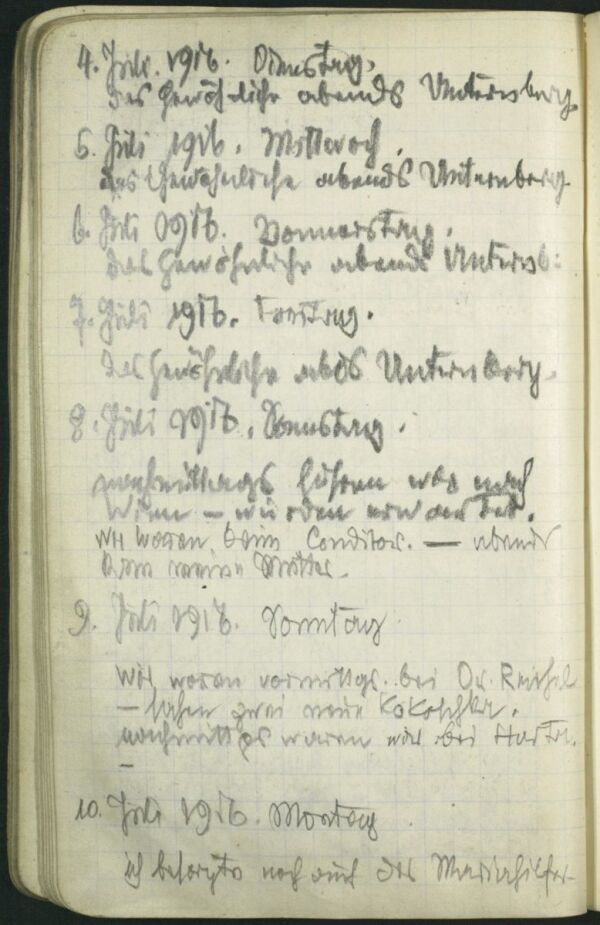 4. Juli. 1916. Dienstag.
das Gewöhnliche abends Unternberg.
5. Juli 1916. Mittwoch.
das Gewöhnliche abends Unternberg.
6. Juli 1916. Donnerstag.
das Gewöhnliche abends Unternb:
7. Juli 1916. Freitag.
das Gewöhnliche abds Unternberg.
8. Juli 1916. Samstag.
nachmittags fuhren wir nach
Wien – wurden erwartet.
wir waren beim Conditor. — abends
kam meine Mutter.
9. Juli 1916. Sonntag
wir waren vormittgs. bei Dr. Reichel
– sahen zwei neue Kokoschka.
nachmittgs waren wir bei Harta.
–
10. Juli 1916. Montag
ich besorgte noch auf der Mariahilfer-